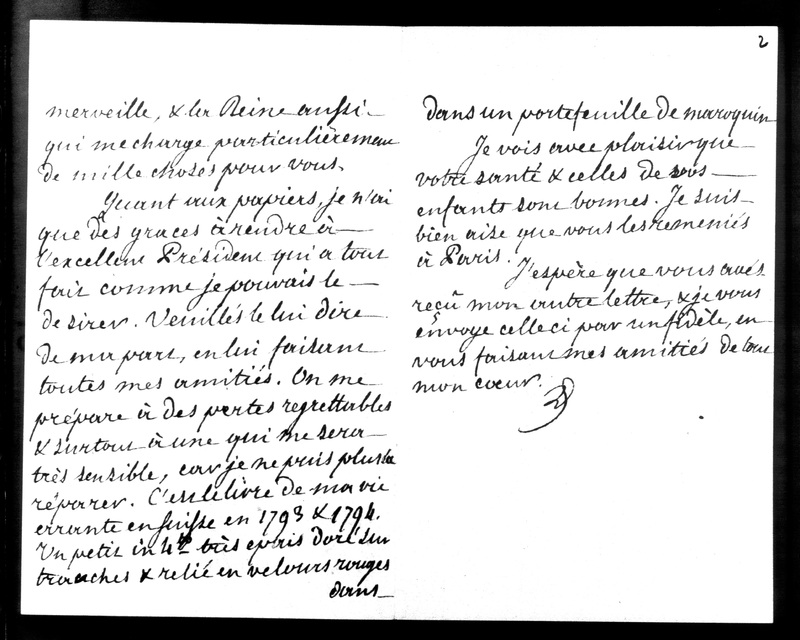 2
merveille, & la Reine aussi
qui me charge particulièremen
de mille choses pour vous.
Quant aux papiers, je n'ai
que des graces à rendre à
l'excellent Président qui a tout
fait comme je pouvais le
desirer. Veuillés le lui dire
de ma part, en lui faisant
toutes mes amitiés. On me
prépare à des pertes regrettables
& surtout à une qui me sera
très sensible, car je ne puis plus la
réparer. C'est le livre de ma vie
errante en Suisse en 1793 & 1794.
Un petit in 4to très epais doré sur
tranches & relié en velours rouges
dans
dans un portefeuille de maroquin
Je vois avec plaisir que
votre santé & celles de vos
enfants sont bonnes. Je suis
bien aise que vous les remeniés
à Paris.
J'espère que vous avés
reçû mon autre lettre, & je vous
envoye celle ci par un fidèle, en
vous faisant mes amitiés de tout
mon coeur.